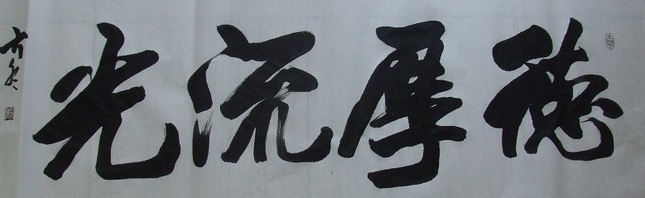 德厚流光